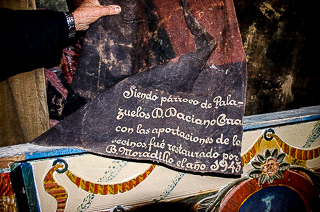 Siendo párroco de Pala-
zuelos D. Daciano Grau
con las aportaciones de lo
vecinos fué restaurado por
B. Moradillo el año 1943